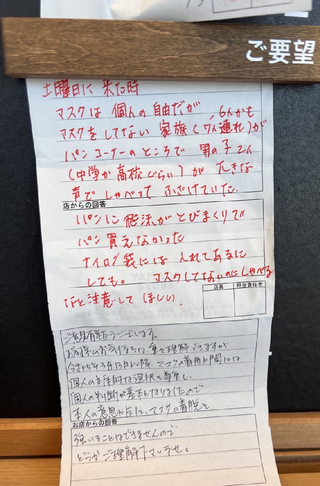 ご要望
土曜日に 来た時
マスクは 個人の自由だが、6人かも
マスクをしてない 家族(7人連れ)が
パンコーナーのところで 男の子2人
(中学か高校ぐらい)が 大きな
声で しゃべって ふざけていた
店からの回答
パンに飛沫がとびまくりで
パン買えなかった
ナイロン袋には 入れてあるに
しても。 マスクしてないのにしゃべるな
店長 担当責任者
などと注意して ほしい。
ご意見有難うございます。
お客様のお気持ちは 重々理解できますが
令和5年3月13日以降、マスクの着用に関しては
個人の主体的な選択を尊重し
個人の判断が基本となりましたので
本人の意思に反して、マスクの着脱を
お店からの回答
強いることはできませんので
どうかご理解下さいませ。